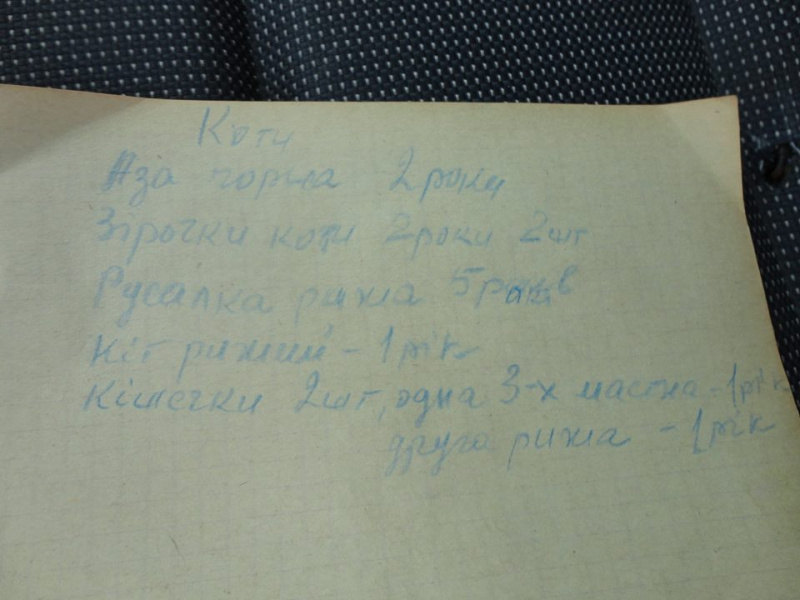 Коти
Аза чорна 2 роки
Зірочки коти 2 роки 2 шт
Русалка рижа 5 років
Кіт рижий - 1 рік
Кішечки 2 шт, одна 3-х мастна - 1 рік
друга рижа - 1 рік